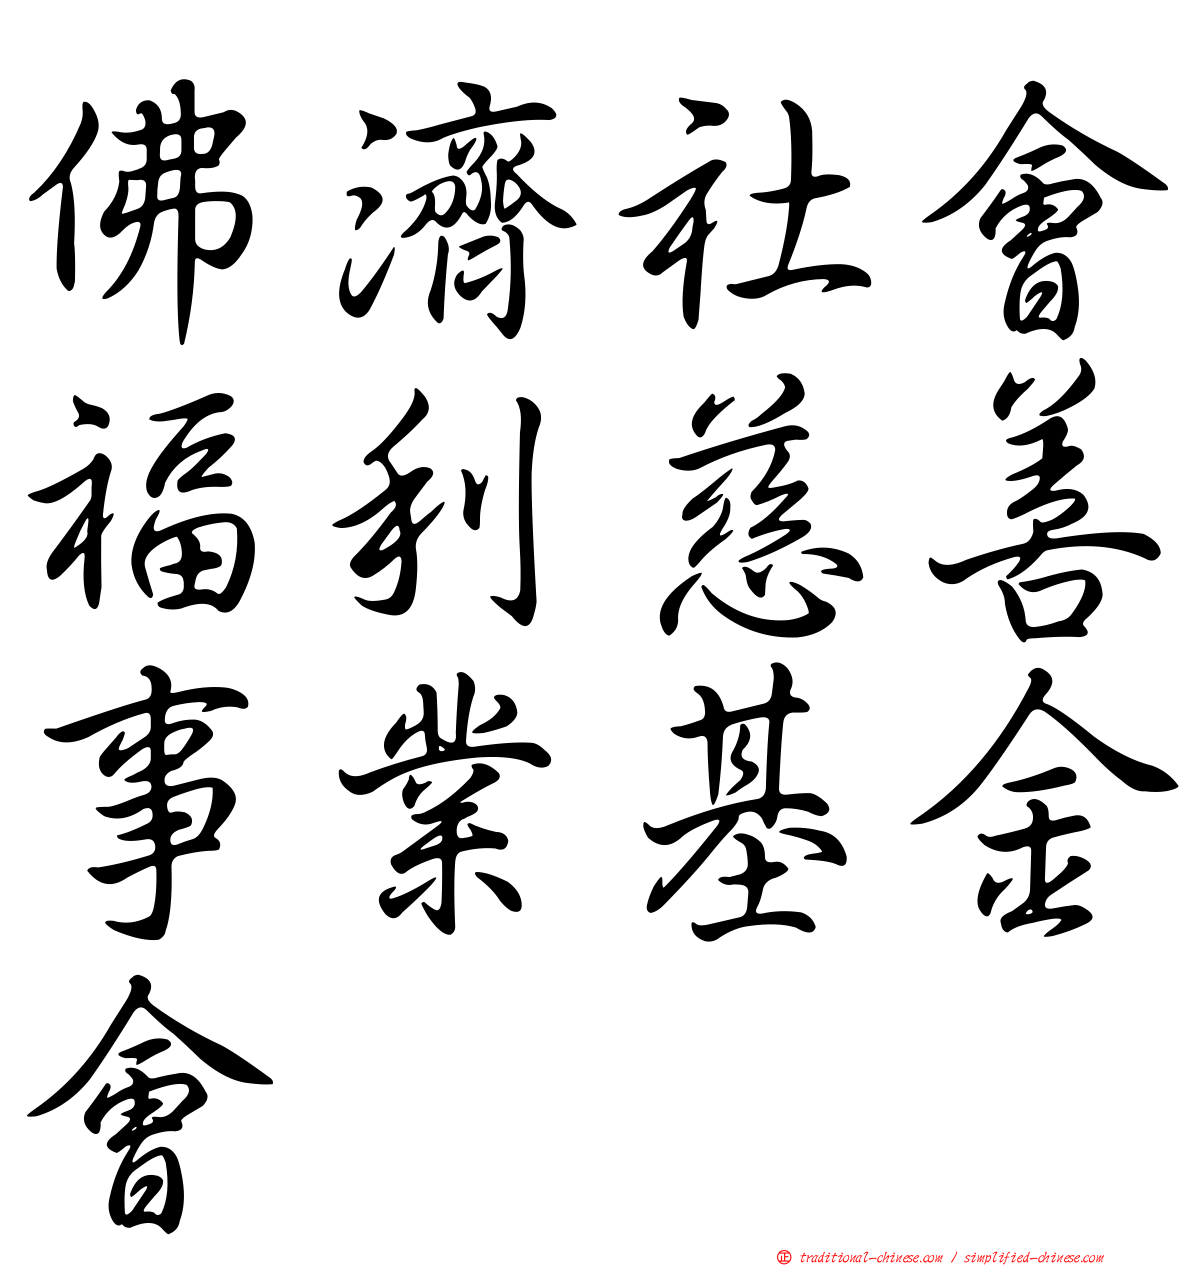 佛濟社會
福利慈善
事業基金
會
㊣ traditional-chinese.com / simplified-chinese.com